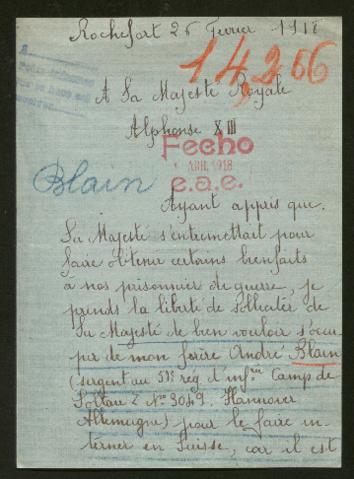 Rochefort 26 Fevrier 1918
14,266
A Sa Majesté Royale
Alphonse XIII
Fecho
ABR. 1918
e.a.e.
Blain
Ayant appris que
Sa Majesté s'entremettait pour
faire obtenir certains bienfaits
à nos prisonnier de guerre, je
prends la liberté de solliciter de
Sa Majesté de bien vouloir s'occu-
per de mon frère André Blain
(sergent au rég d'infrie Camp de
Soltau Z No 3049 Hannover
Allemagne) pour le faire in-
terner en Suisse, car il est